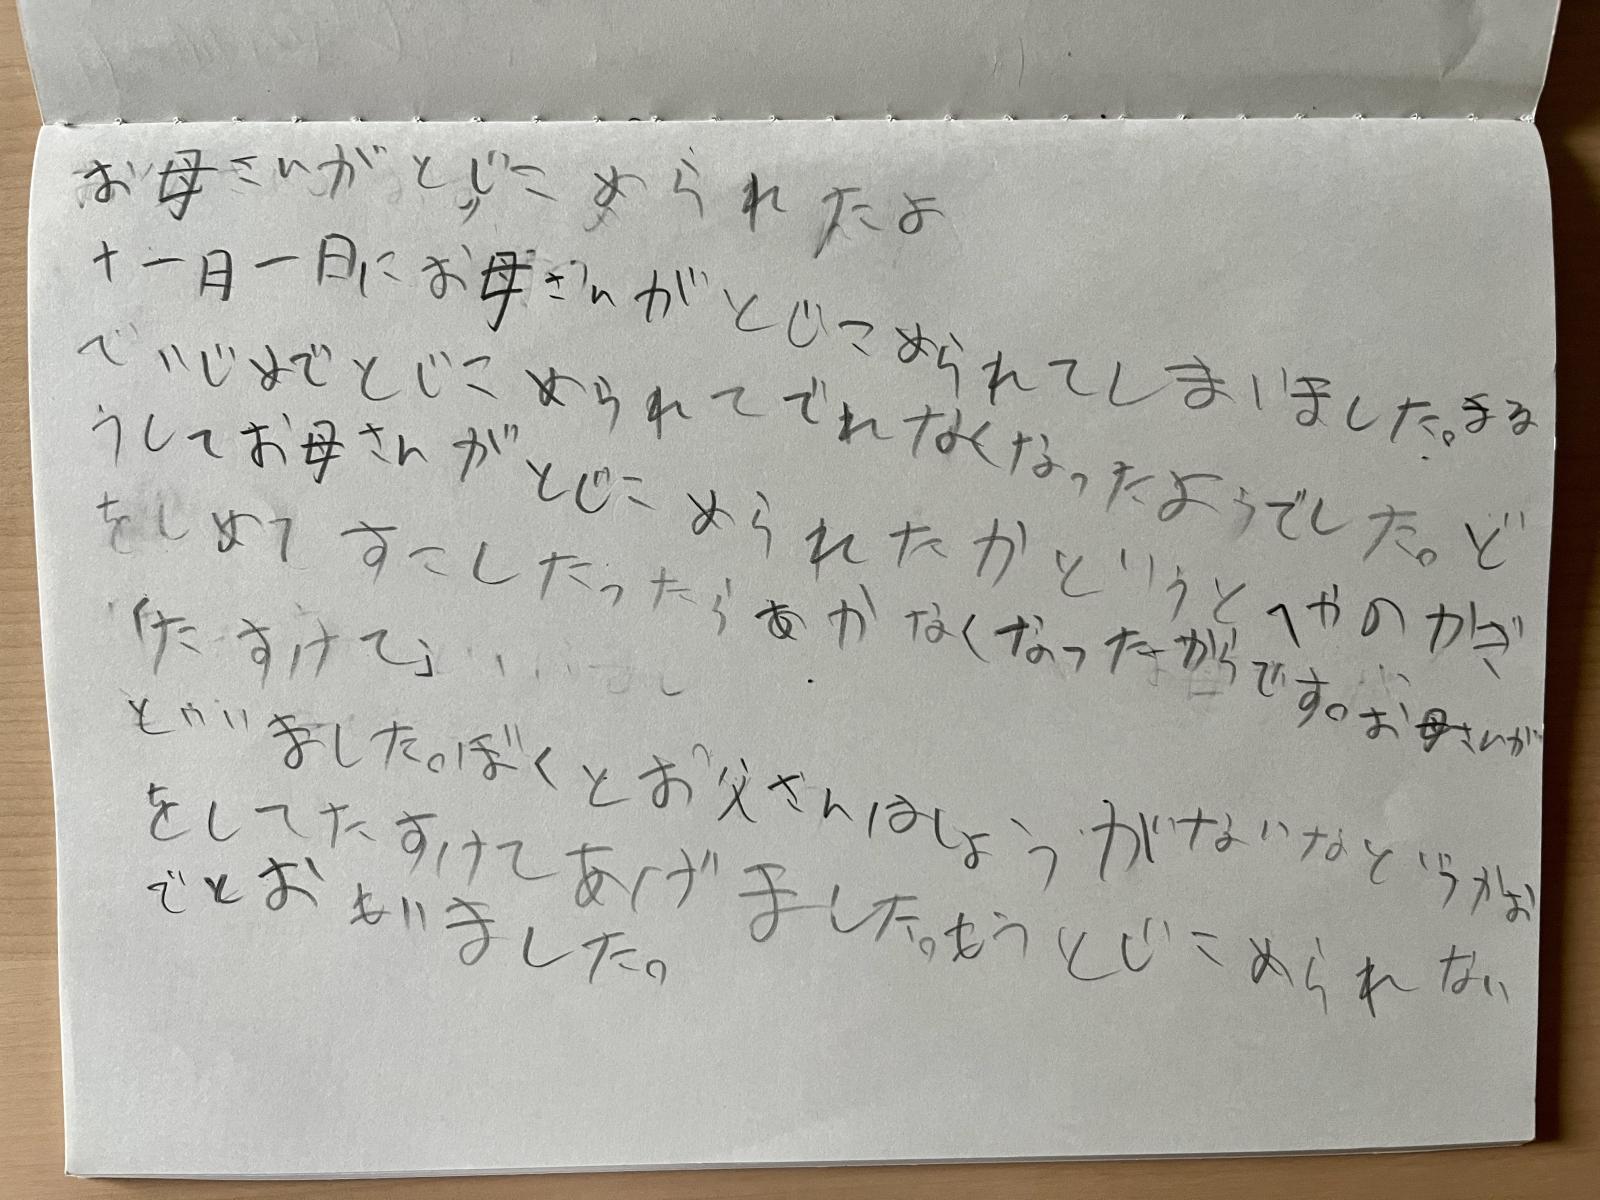 お母さんがとじこめられたよ
十一月一日にお母さんがとじこめられてしまいました。まる
でいじめでとじこめられてでれなくなったようでした。ど
うしてお母さんがとじこめられたかというとへやのかぎ
をしめてすこしたったらあかなくなったからです。お母さんが
「たすけて」
といいました。ぼくとお父さんはしょうがないなというかお
をしてたすけてあげました。もうとじこめられない
でとおもいました。